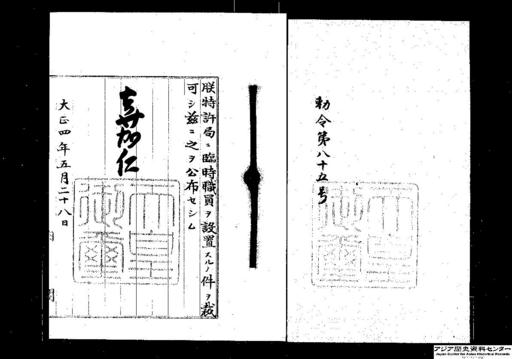 勅令第八十五号
朕特許局ニ臨時職員ヲ設置スルノ件ヲ裁
可シ茲ニ之ヲ公布セシム
嘉仁
大正四年五月二十八日
天皇
御璽
アジア歴史資料センター
Japan Center for Asian Historical Records